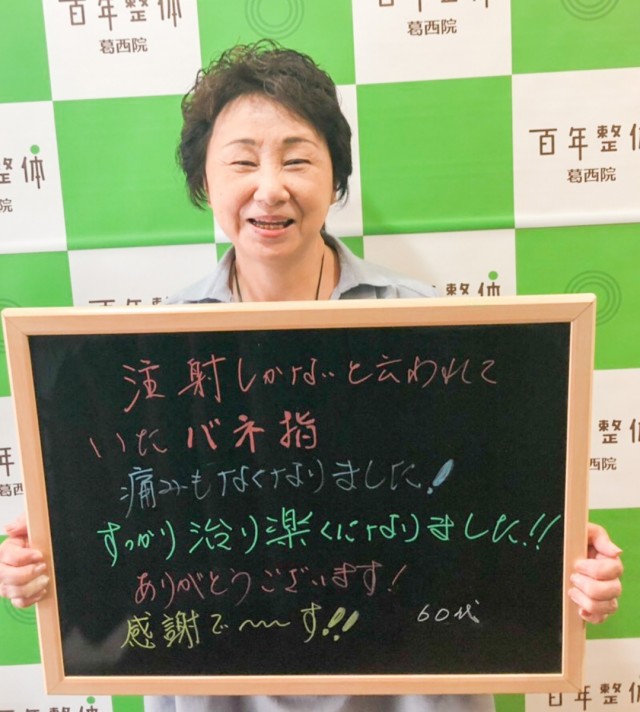 百年整体
葛西院
百年整体
葛西院
百年整体
葛西院
整体
院
百年整体
整体
注射しかないと云われて
いたバネ指
痛みもなくなりました!
すっかり治り楽くになりました!!
ありがとうございます!
感謝で〜〜す!!
60代
百年
葛西
整体
西院
百年整体
百年整体